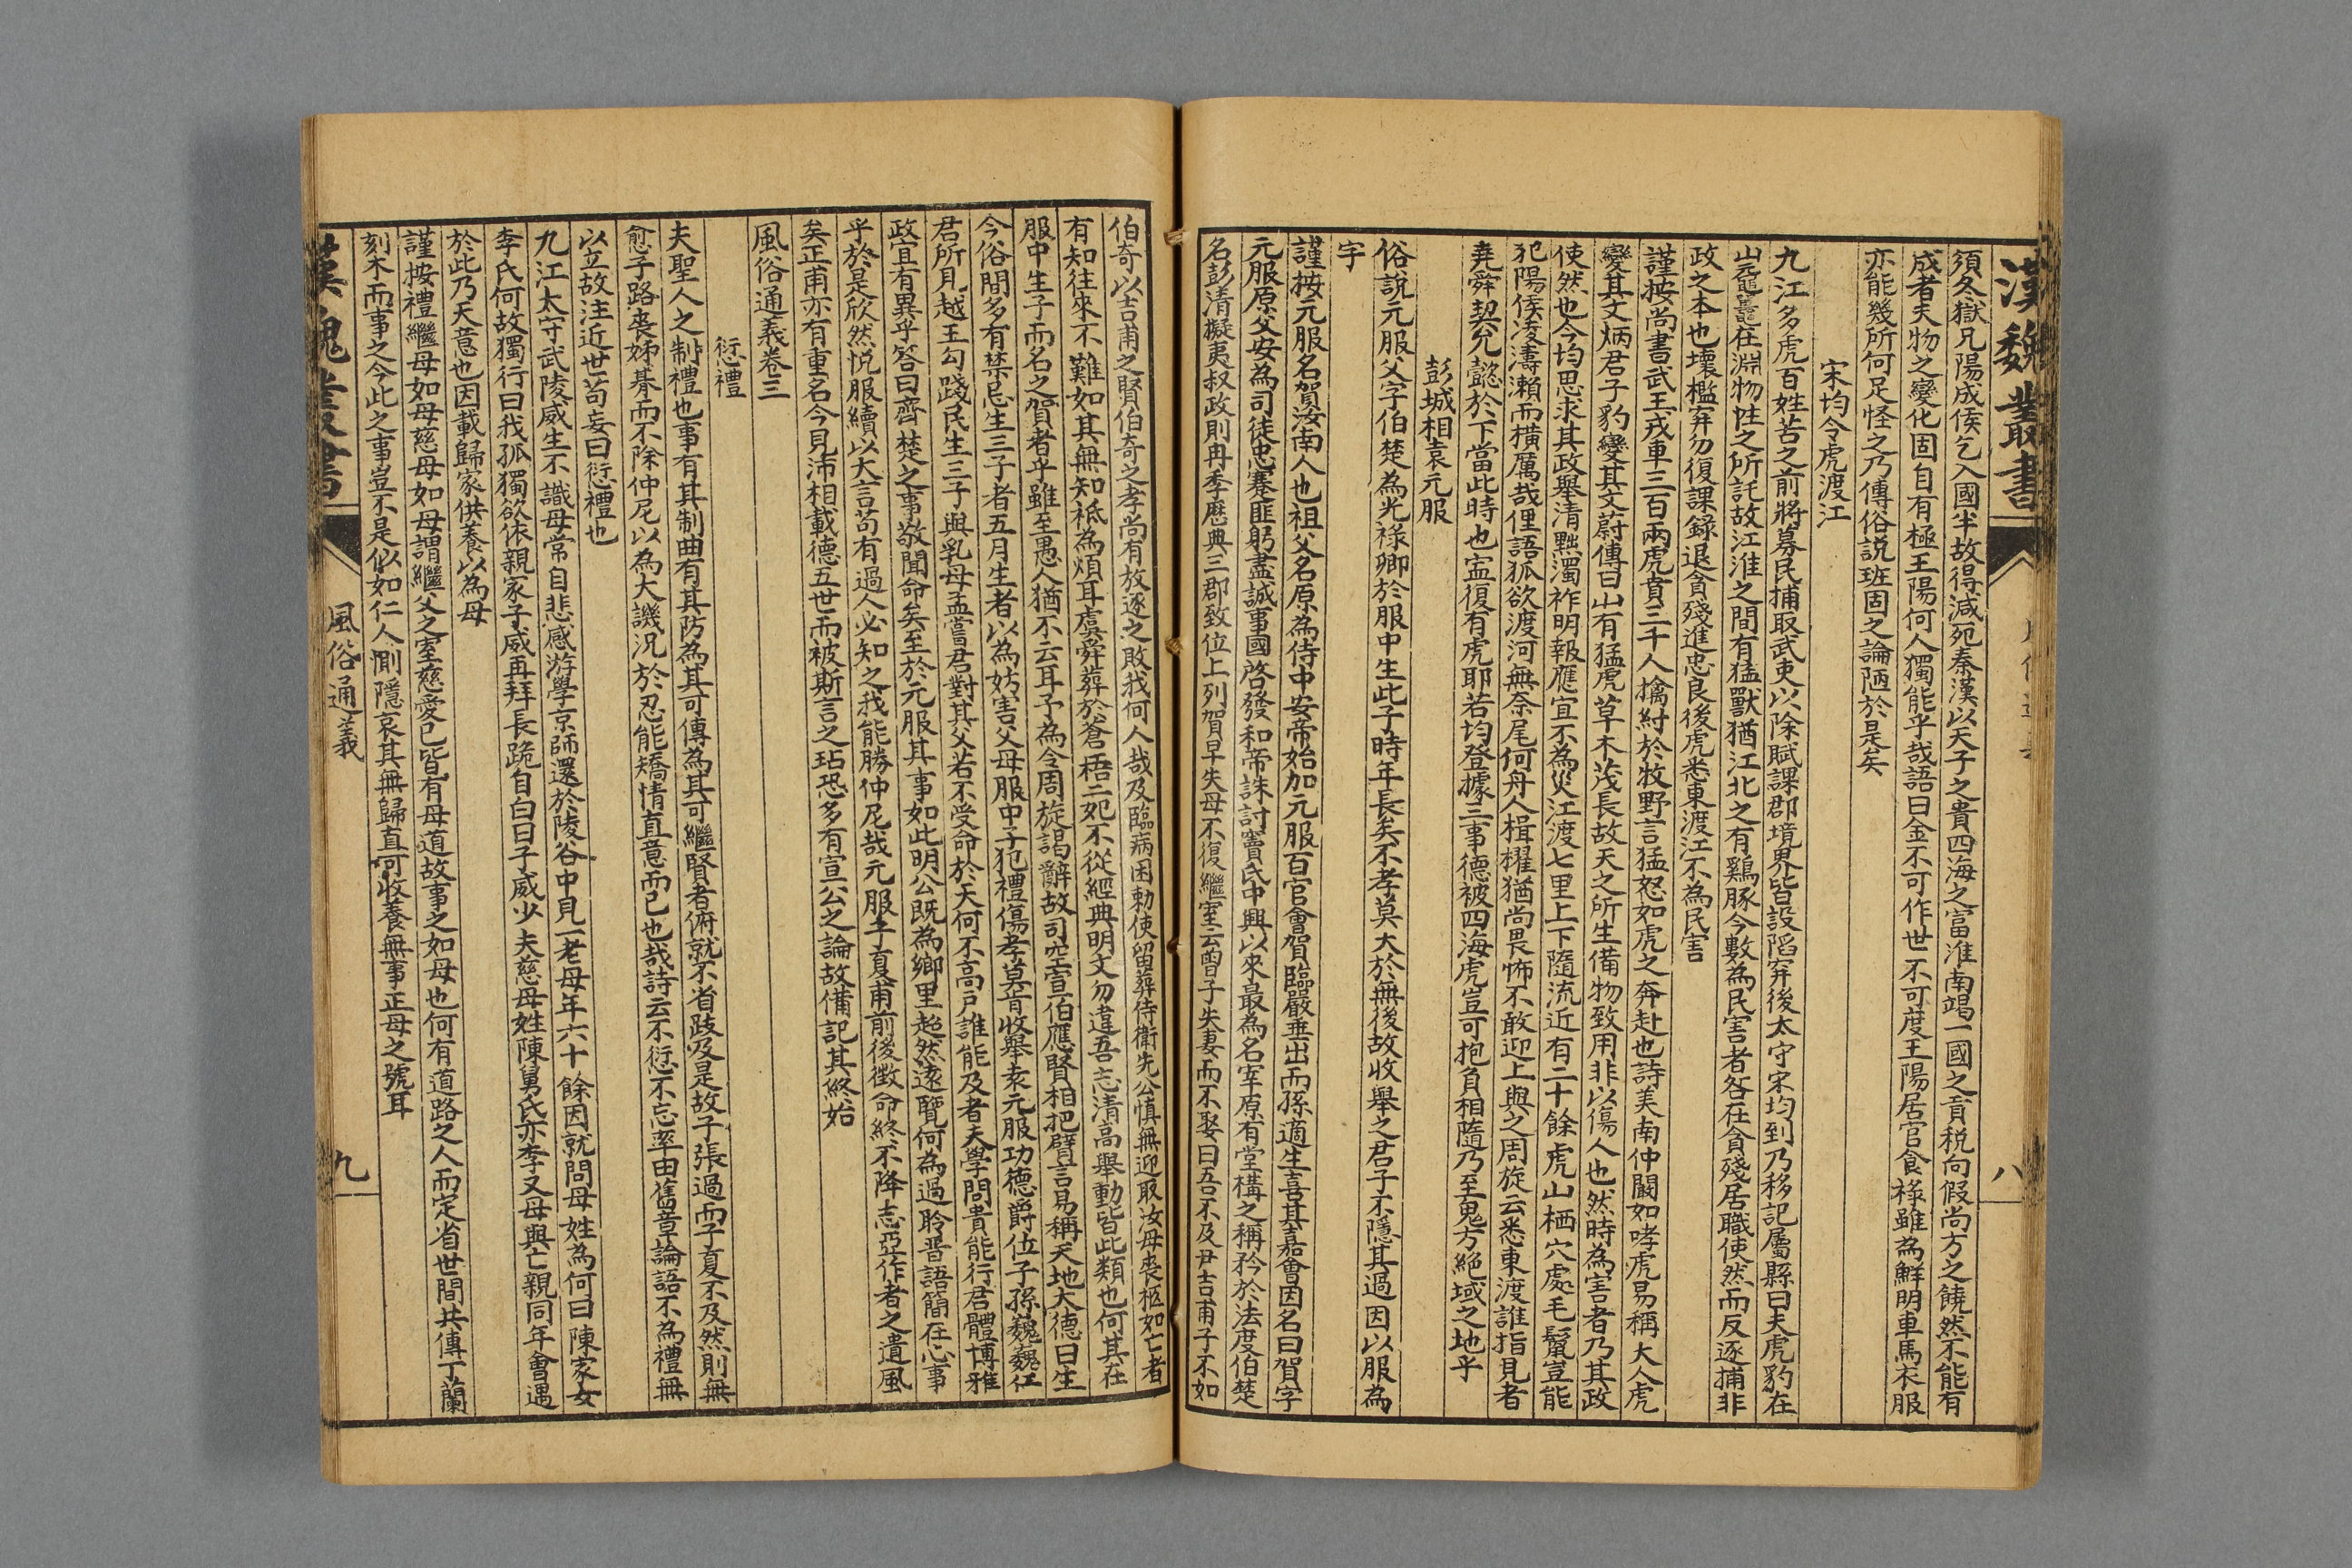 漢魏叢書
八
須冬獄兄陽成侯乞入國半故得減死秦漢以天子之貴四海之富淮南竭一國之貢税向假尚方之饒然不能有
成者夫物之變化固自有極王陽何人獨能乎哉語曰金不可作世不可度王陽居官食禄雖為鮮明車馬衣服
亦能幾所何足怪之乃傳俗説班固之論陋於是矣
宋均令虎渡江
九江多虎百姓苦之前將募民捕取武吏以除賦課郡境界皆設䧟穽後太守宋均到乃移記屬縣曰夫虎豹在
山黿鼉在淵物性之所託故江淮之間有猛獸猶江北之有鷄豚今數為民害者咎在貪殘居職使然而反逐捕非
政之本也壞檻穽勿復課録退貪殘進忠良後虎悉東渡江不為民害
謹按尚書武王戎車三百兩虎賁三千人擒紂於牧野言猛怒如虎之奔赴也詩美南仲闞如哮虎易稱大人虎
變其文炳君子豹變其文蔚傳曰山有猛虎草木茂長故天之所生備物致用非以傷人也然時為害者乃其政
使然也今均思求其政舉清黜濁祚明報應宜不為災江渡七里上下隨流近有二十餘虎山栖穴處毛鬣豈能
犯陽侯凌濤瀨而横厲哉俚語狐欲渡河無奈尾何舟人楫櫂猶尚畏怖不敢迎上與之周旋云悉東渡誰指見者
堯舜契允懿於下當此時也寍復有虎耶若均登據三事德被四海虎豈可抱負相隨乃至鬼方絶域之地乎
彭城相袁元服
俗説元服父字伯楚為光禄卿於服中生此子時年長矣不孝莫大於無後故收舉之君子不隱其過因以服為
字
謹按元服名賀汝南人也祖父名原為侍中安帝始加元服百官會賀臨嚴垂出而孫適生喜其嘉會因名曰賀字
元服原父安為司徒忠蹇匪躬盡誠事國啓發和帝誅討竇氏中興以來最為名宰原有堂構之稱矜於法度伯楚
名彭清擬夷叔政則冉季歷典三郡致位上列賀早失母不復繼室云曾子失妻而不娶曰吾不及尹吉甫子不如
伯奇以吉甫之賢伯奇之孝尚有放逐之敗我何人哉及臨病困勅使留葬侍衛先公慎無迎取汝母喪柩如亡者
有知往來不難如其無知祇為煩耳虞舜葬於蒼梧二妃不從經典明文勿違吾志清高舉動皆此類也何其在
服中生子而名之賀者乎雖至愚人猶不云耳予為令周旋謁辭故司空宣伯應賢相把臂言易稱天地大德曰生
今俗間多有禁忌生三子者五月生者以為妨害父母服中子犯禮傷孝莫肯收舉袁元服功德爵位子孫巍巍仁
君所見越王勾踐民生三子與乳母孟嘗君對其父若不受命於天何不高戸誰能及者夫學問貴能行君體博雅
政宜有異乎答曰齊楚之事敬聞命矣至於元服其事如此明公既為鄉里超然遠覽何為過聆晉語簡在心事
乎於是欣然悦服續以大言苟有過人必知之我能勝仲尼哉元服子夏甫前後徵命終不降志亞作者之遺風
矣正甫亦有重名今見沛相載德五世而被斯言之玷恐多有宣公之論故備記其終始
風俗通義卷三
愆禮
夫聖人之制禮也事有其制曲有其防為其可傳為其可繼賢者俯就不肖跂及是故子張過而子夏不及然則無
愈子路喪姊朞而不除仲尼以為大譏況於忍能矯情直意而已也哉詩云不愆不忘率由舊章論語不為禮無
以立故注近世苟妄曰愆禮也
九江太守武陵威生不識母常自悲感游學京師還於陵谷中見一老母年六十餘因就問母姓為何曰陳家女
李氏何故獨行曰我孤獨欲依親家子威再拜長跪自白曰子威少夫慈母姓陳舅氏亦李又母與亡親同年會遇
於此乃天意也因載歸家供養以為母
謹按禮繼母如母慈母如母謂繼父之室慈愛已皆有母道故事之如母也何有道路之人而定省世間共傳丁蘭
刻木而事之今此之事豈不是似如仁人惻隱哀其無歸直可收養無事正母之號耳
漢魏叢書
風俗通義
九